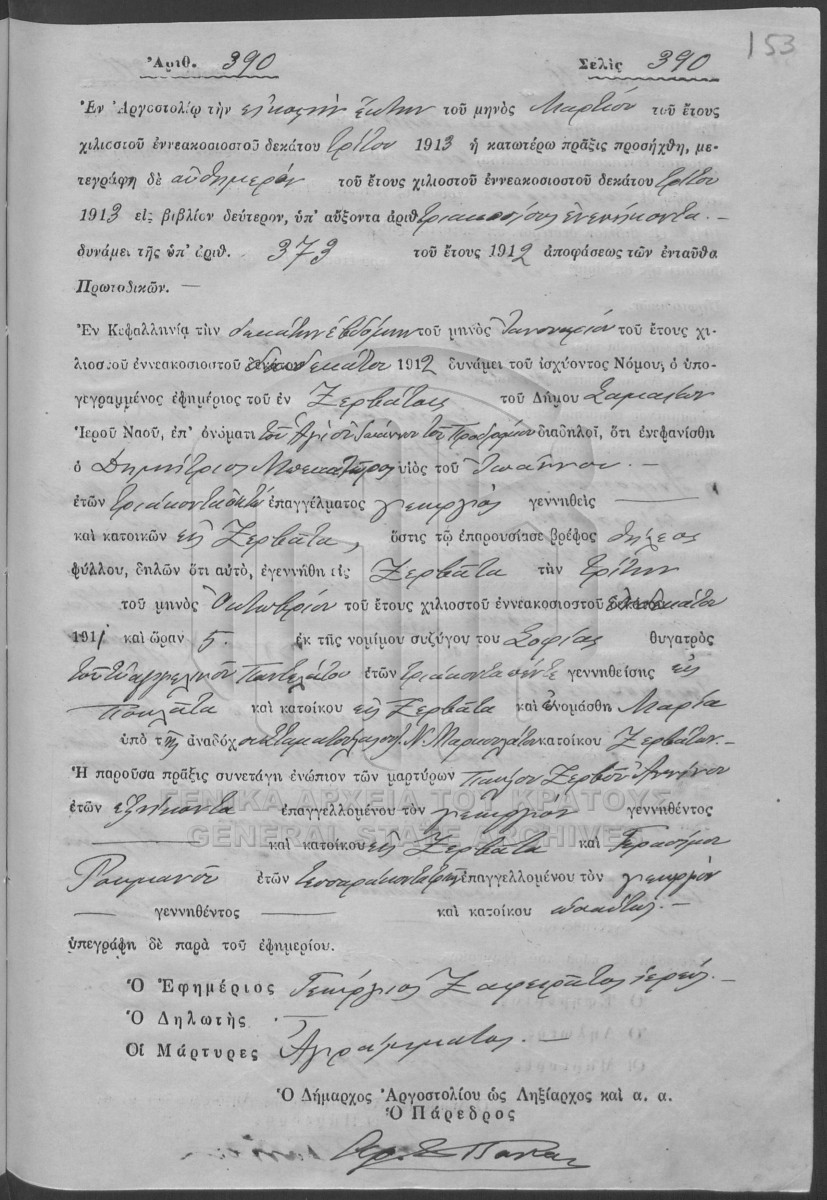 153
Ἀριθ. 390 Σελὶς 390
Ἐν Ἀργοστολίῳ τὴν εἰκοστὴν ἕκτην τοῦ μηνὸς Μαρτίου τοῦ ἔτους
χιλιοστοῦ ἐννεακοσιοστοῦ δεκάτου τρίτου 1913 ἡ κατωτέρω πρᾶξις προσήχθη, με-
τεγράφη δὲ αὐθημερὸν τοῦ ἔτους χιλιοστοῦ ἐννεακοσιοστοῦ δεκάτου τρίτου
1913 εἰς βιβλίον δεύτερον, ὑπ' αὔξοντα ἀριθ. τριακοσίους ἐνενήκοντα. –
δυνάμει τῆς ὑπ' ἀριθ. 373 τοῦ ἔτους 1912 ἀποφάσεως τῶν ἐνταῦθα
Πρωτοδικῶν. —
Ἐν Κεφαλληνίᾳ τὴν δεκάτην ἑβδόμην τοῦ μηνὸς Ἰανουαρίου τοῦ ἔτους χι-
λιοστοῦ ἐννεακοσιοστοῦ δωδεκάτου 1912 δυνάμει τοῦ ἰσχύοντος Νόμου, ὁ ὑπο-
γεγραμμένος ἐφημέριος τοῦ ἐν Ζερβάτοις τοῦ Δήμου Σαμαίων
Ἱεροῦ Ναοῦ, ἐπ' ὀνόματι τοῦ Ἁγίου Ἰωάννου τοῦ Προδρόμου διαδηλοῖ, ὅτι ἐνεφανίσθη
ὁ Δημήτριος Μπεκατῶρος υἱὸς τοῦ Ἰωάννου. –
ἐτῶν τριάκοντα ὀκτὼ ἐπαγγέλματος γεωργὸς γεννηθεὶς —
καὶ κατοικῶν εἰς Ζερβᾶτα, ὅστις τῷ ἐπαρουσίασε βρέφος θήλεος
φύλλου, δηλῶν ὅτι αὐτὸ, ἐγεννήθη εἰς Ζερβᾶτα τὴν τρίτην
τοῦ μηνὸς Ὀκτωβρίου τοῦ ἔτους χιλιοστοῦ ἐννεακοσιοστοῦ ἑνδεκάτου
1911 καὶ ὥραν 5. ἐκ τῆς νομίμου συζύγου του Σοφίας θυγατρὸς
τοῦ Εὐαγγελινοῦ Παντελάτου ἐτῶν τριάκοντα πέντε γεννηθείσης εἰς
Πουλᾶτα καὶ κατοίκου εἰς Ζερβᾶτα καὶ ὠνομάσθη Μαρία
ὑπὸ τῆς ἀναδόχου Σταματούλας Ν. Μαρκουλάτου κατοίκου Ζερβάτων. –
Ἡ παροῦσα πρᾶξις συνετάγη ἐνώπιον τῶν μαρτύρων Παύλου Ζερβοῦ
ἐτῶν ἑξήκοντα ἐπαγγελλομένου τὸν γεωργὸν γεννηθέντος
ΓΕΝΙΚΑ ΑΡΧΕΙΑ ΤΟΥ ΚΡΑΤΟΥΣ
GENERAL STATE ARCHIVES
— καὶ κατοίκου εἰς Ζερβᾶτα καὶ Γερασίμου
Ρουμανοῦ ἐτῶν ἐπαγγελλομένου τὸν γεωργὸν
— γεννηθέντος — καὶ κατοίκου ὡσαύτως. –
ὑπεγράφη δὲ παρὰ τοῦ ἐφημερίου.
Ὁ Ἐφημέριος Γεώργιος Ζαφειρᾶτος ἱερεύς. –
Ὁ Δηλωτὴς —
Οἱ Μάρτυρες Ἀγράμματος. –
Ὁ Δήμαρχος Ἀργοστολίου ὡς Ληξίαρχος καὶ α. α.
Ὁ Πάρεδρος